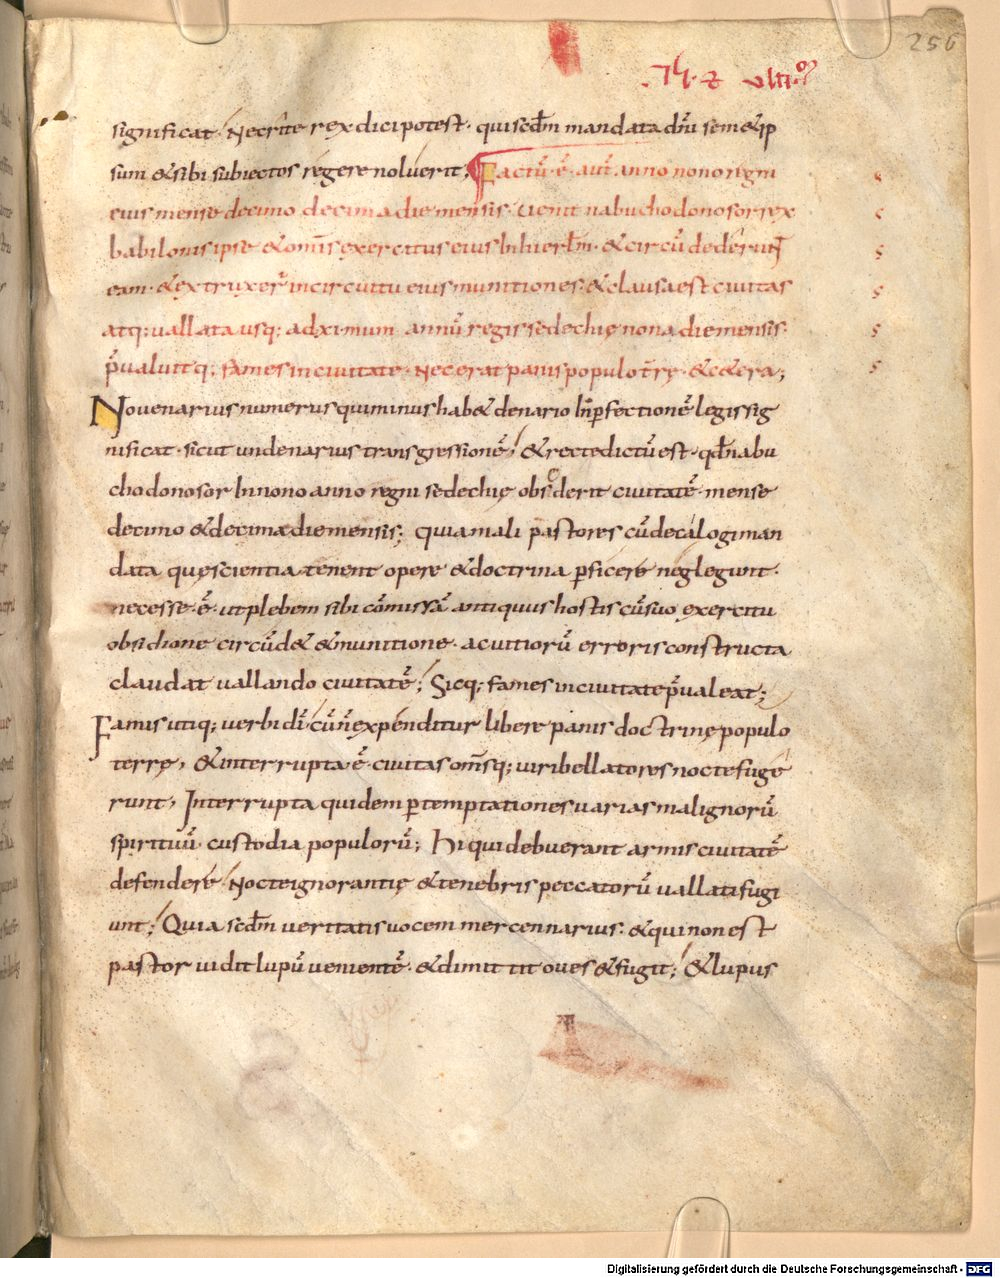 256
significat. Necrite rex dici potest. qui scd̄m mandata dn̄i sem&ip
sum &sibi subiectos regere noluerit; Factū. ē. aut̄. anno nono regni
eius mense decimo decima die mensis. Uenit nabuchodonosor rex
babilonis ipse &om̄is exercitus eius inhierl̄m. &circū dederunt
eam. &extruxer̄ incircuitu eius munitiones. &clausa est ciuitas
atq; uallata usq; adxi mum annū regis sedechię nona die mensis.
p̄ualuitq; fames inciuitate. Nec erat panis populo t̄rę. &c&era;
Nouenarius numerus quiminus hab& denario Inp̄fectionē legis sig
nificat. sicut undenarius transgressionē; &recte dictū est. qd̄ nabu
chodonosor In nono anno regni sedechię obsederit ciuitatē. mense
decimo &decima die mensis; quia mali pastores cū decalogi man
data quę scientia tenent opere &doctrina p̄ficere neglegunt.
necesse. ē. ut plebem sibi cōmissā antiquus hostis cū suo exercitu
obsidione circūd& &munitione. ac uitiorū erroris constructa
claudat uallando ciuitatē; Sicq; fames inciuitate p̄ualeat;
Famis utiq; uerbi dī. cū n̄ expenditur libere panis doctrinę populo
terrę, &interrupta ē. ciuitas om̄sq; uiri bellatores nocte fuge
runt, Interrupta quidem p̄ temptationes uarias malignorū
spirituū. custodia populorū; Hi qui debuerant armis ciuitatē
defendere Nocte ignorantię &tenebris peccatorū uallati fugi
unt; Quia scd̄m ueritatis uocem mercennarius. &qui non est
pastor uidit lupū uenientē. &dimittit oues &fugit; &lupus
Digitalisierung gefördert durch die Deutsche Forschungsgemeinschaft - DFG